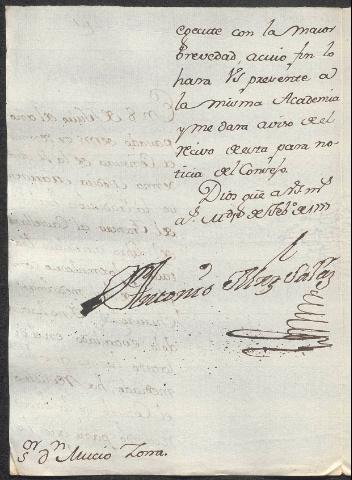 egecute con la maior
brevedad, a cuio fin lo
hara VS presente a
la misma Academia
y me dara aviso de el
recivo de esta para no-
ticia del Consejo.
Dios gue a VS ms
as. Madrid de Febo. de
Antonio Mrnz Salaz
sor dn Mucio Zona.